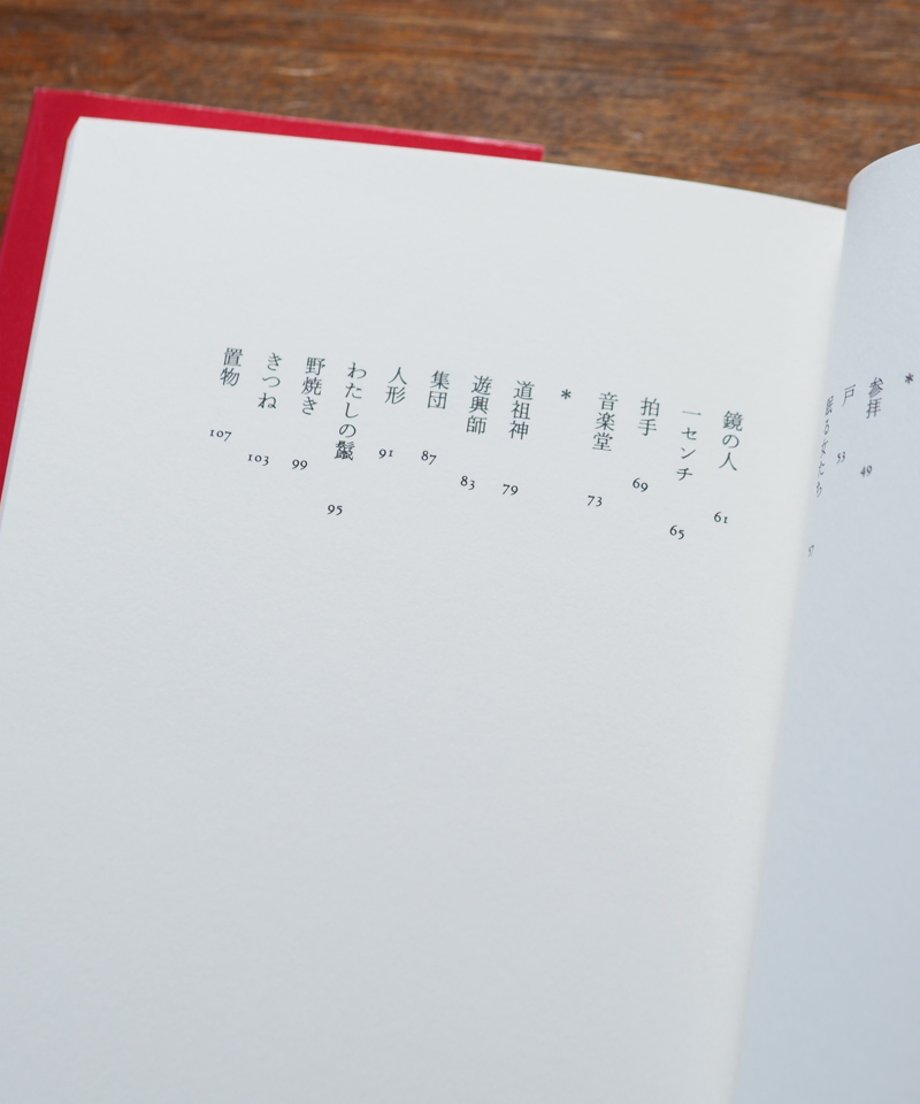 *
参拝 49
戸 53
眠る女たち 57
鏡の人 61
一センチ 65
拍手 69
音楽堂 73
*
道祖神 79
遊興師 83
集団 87
人形 91
わたしの鬣 95
野焼き 99
きつね 103
置物 107